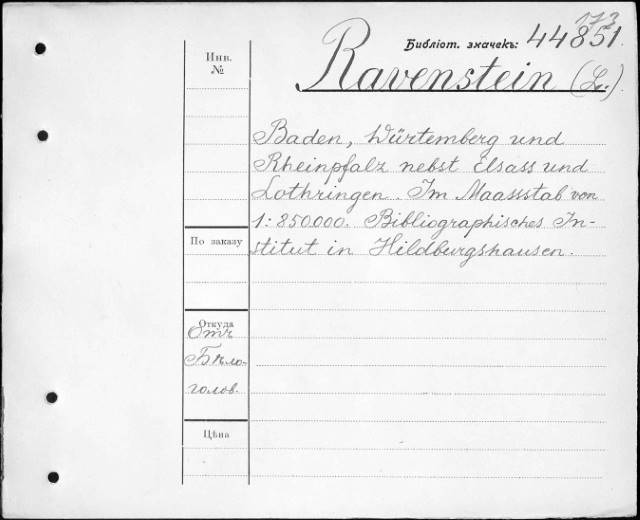 173
Библіот. значекъ: 44851.
Инв.
№
Ravenstein (L.)
Baden, Würtemberg und
Rheinpfalz nebst Elsass und
Lothringen. Im Maassstab von
1:850.000. Bibliographisches In-
stitut in Hildburgshausen.
По заказу
Откуда
Отъ
Бѣло-
голов.
Цѣна